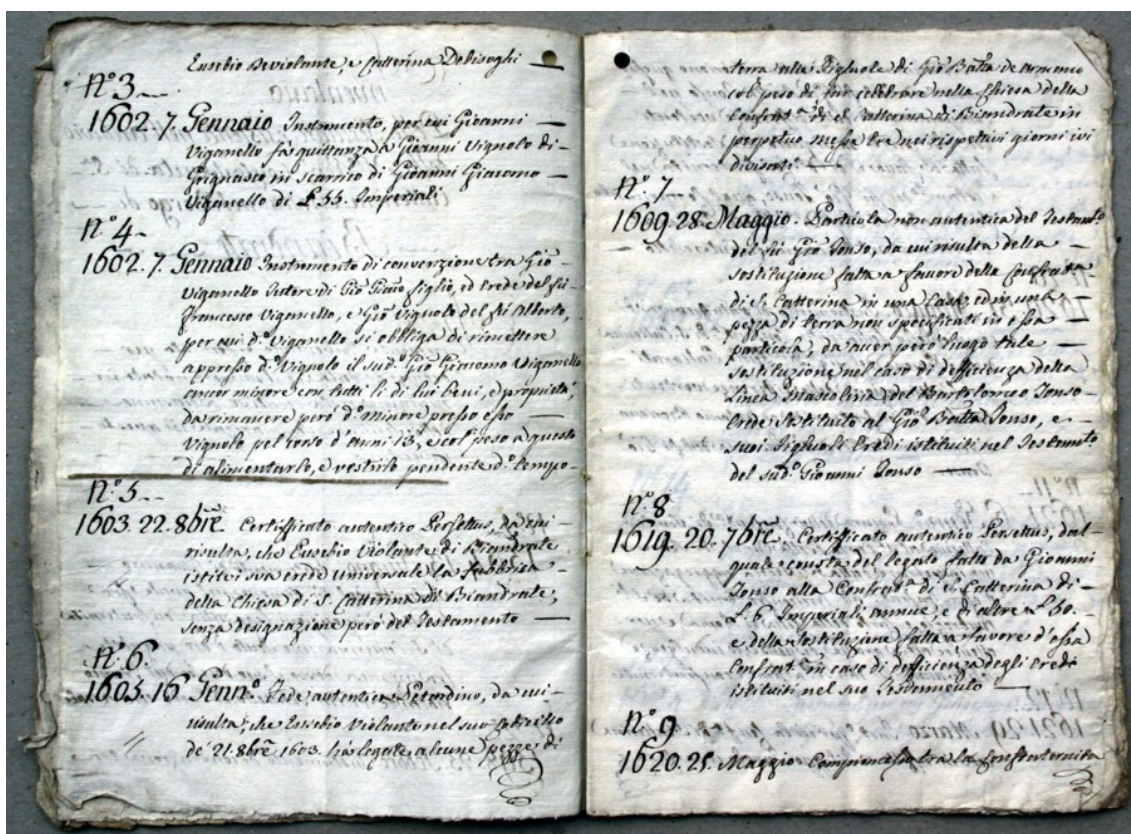 Eusebio Deviolante, e Catterina Debisoghi
N.º 3
1602. 7. Gennaio Instromento, per cui Gioanni
Viganello fà quittanza a Gioanni Vignolo di
Grignasco in scarrico di Gioanni Giacomo
Viganello di £ 55. Imperiali
N.º 4
1602. 7. Gennaio Instromento di convenzione tra Gio
Viganello Tutore di Gio Giac.º figlio, ed erede del fù
Francesco Viganello, e Gio Vignolo del fù Alberto,
per cui d.º Viganello si obbliga di rimettere
appresso d.º Vignolo il sud.º Gio Giacomo Viganello
ancor minore con tutti li di lui beni, e proprietà,
da rimanere però d.º minore presso esso
Vignolo pel corso d'anni 13, e col peso a questo
di alimentarlo, e vestirlo pendente d.º tempo
N.º 5
1603. 22. 8bre. Certifficato autentico Persettus, da cui
risulta, che Eusebio Violante di Biandrate
istituì sua erede universale la fabbrica
della Chiesa di S. Catterina di Biandrate,
senza designazione però del Testamento
N.º 6.
1605. 16 Genn.º Fede autentica da cui
risulta, che Eusebio Violante nel suo
de' 21. 8bre 1603. hà legate alcune pezze di
terra alle Figliuole di Gio Batta de
col peso di far cellebrare nella Chiesa della
Confrat.ª di Catterina di Biandrate in
perpetuo messe tre nei rispettivi giorni ivi
divisati
N.º 7
1609. 28. Maggio. Particola non autentica del Testam.to
del fù Gio Tonso, da cui risulta della
sostituzione fatta a favore della Confrat.ª
di S. Catterina in una Casa, ed in una
pezza di terra non specificati in essa
particola, da aver però luogo tale
sostituzione nel caso di defficienza della
linea Mascolina del Bartolomeo Tonso
Erede istituito al Gio Batta Tonso, e
suoi Figliuoli Eredi istituiti nel Testam.to
del sud.º Gioanni Tonso
N.º 8
1619. 20. 7bre. Certifficato autentico Persettus, dal
quale consta del legato fatto da Gioanni
Tonso alla Confrat.ª di S. Catterina di
£. 6. Imperiali annue, e di altre £ 50.
e della sostituzione fatta a favore d'essa
Confrat.ª in caso di defficienza degli Eredi
istituiti nel suo Testamento
N.º 9
1620. 25. Maggio tra la Confraternita